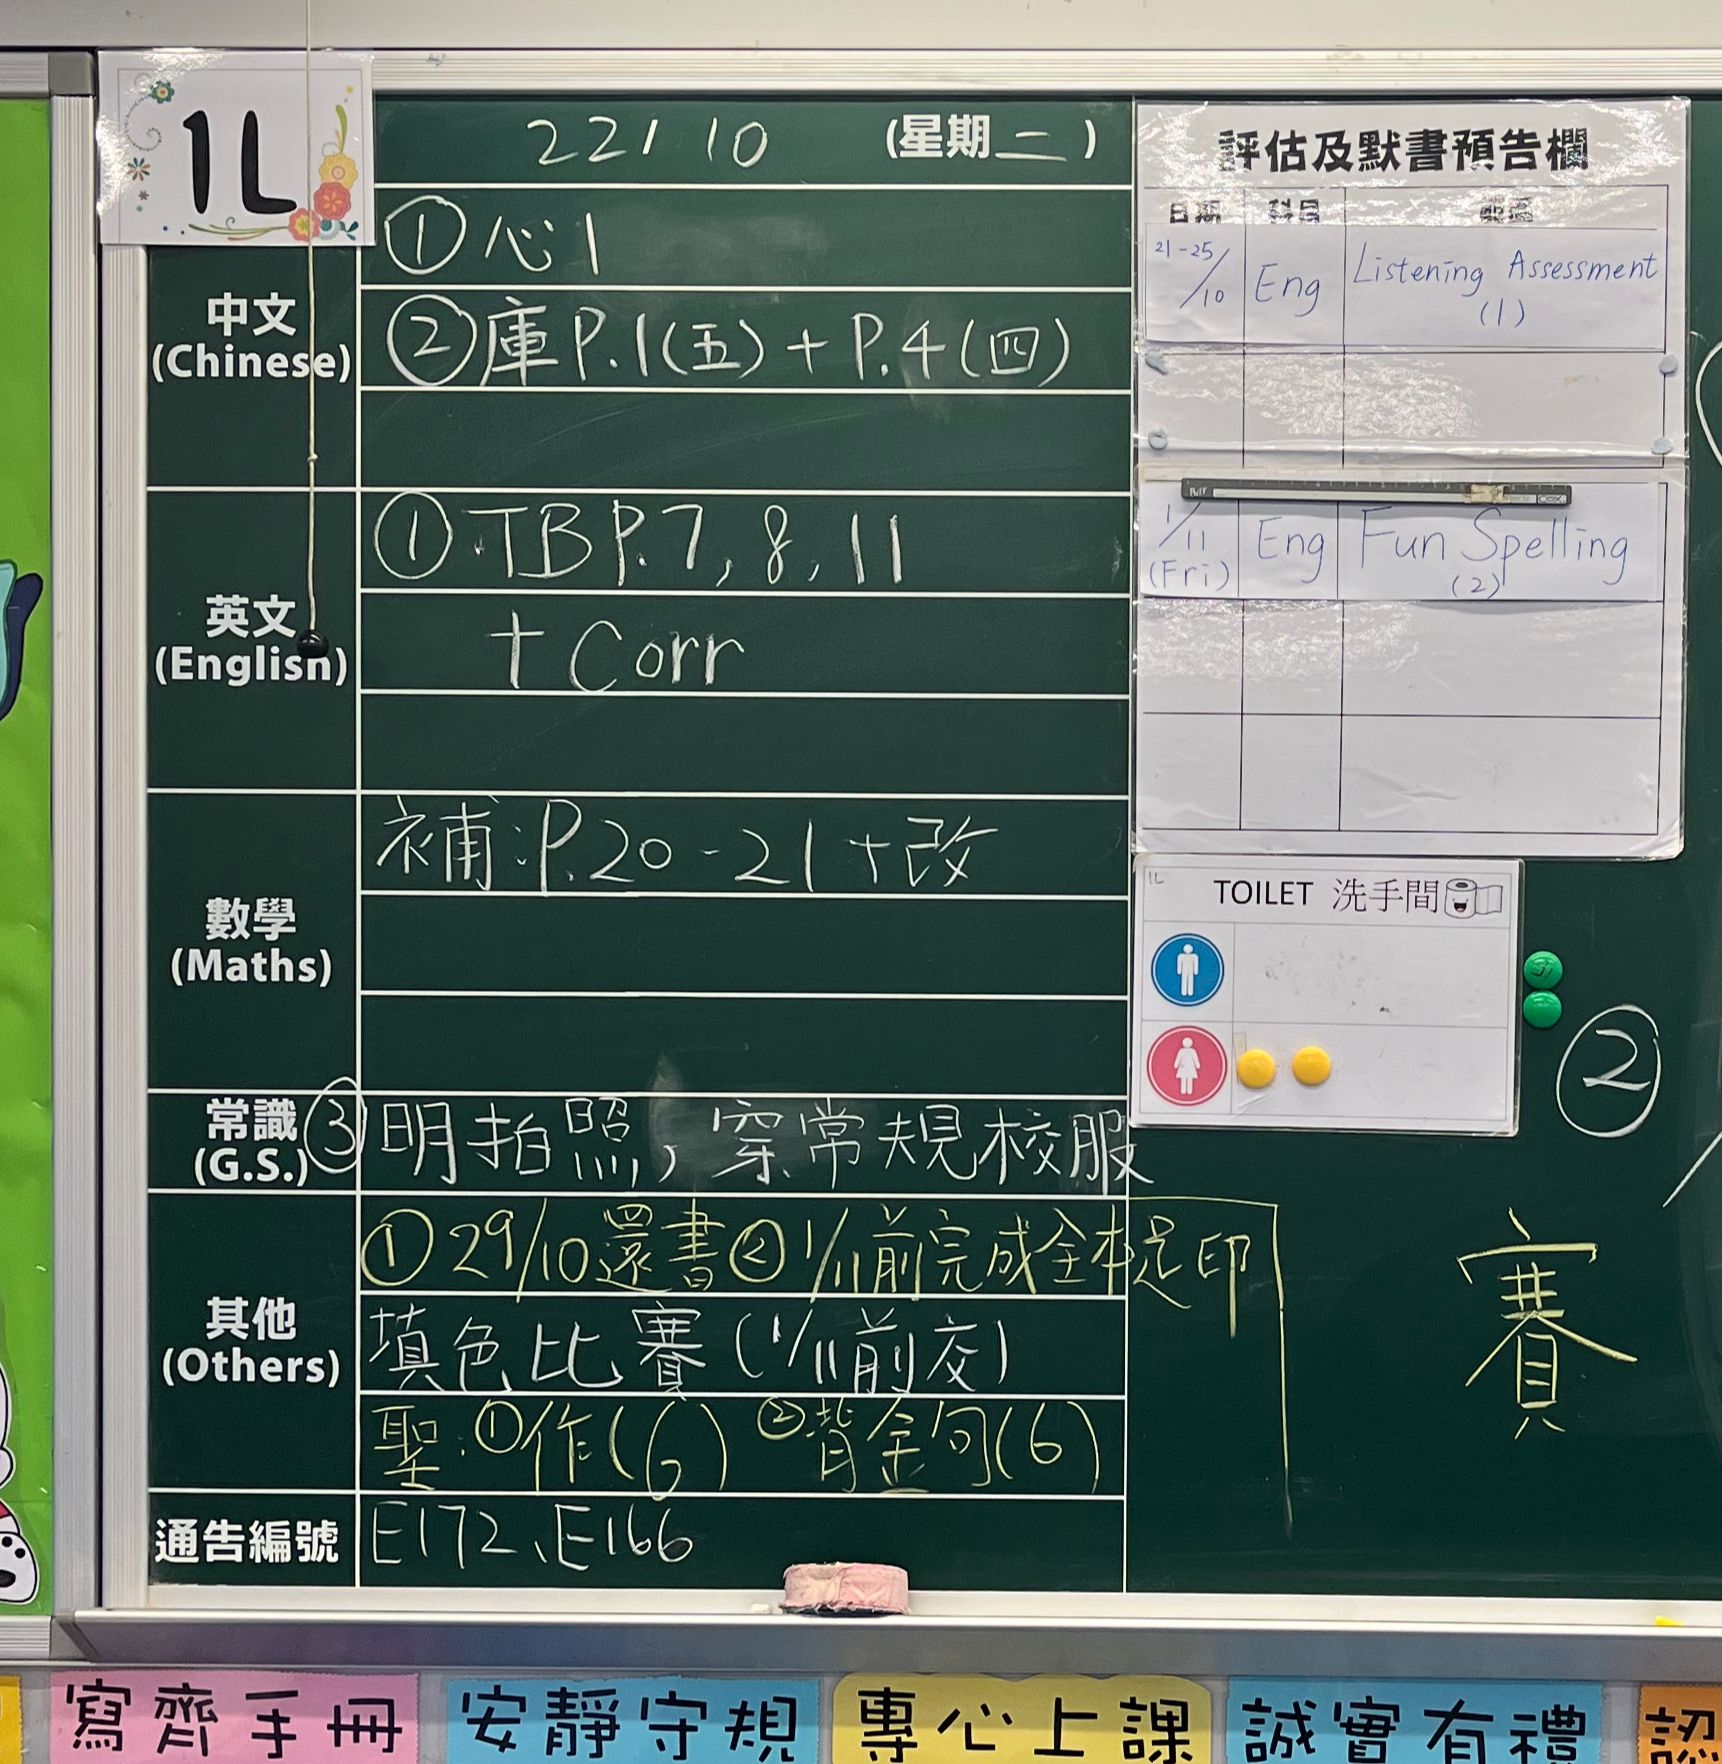 1L
22/10 (星期二)
中文
(Chinese)
①心1
②庫P.1(五)+P.4(四)
英文
(English)
①TB P.7, 8, 11
+Corr
數學
(Maths)
補:P.20-21+改
常識
(G.S.)
③明拍照,穿常規校服
其他
(Others)
①29/10還書②1/11前完成全本足印
填色比賽(1/11前交)
聖:①作(6) ②背金句(6)
通告編號
E172、E166
評估及默書預告欄
日期 科目 範圍
21-25/10 Eng Listening Assessment
(1)
1/11
(Fri) Eng Fun Spelling
(2)
1L
TOILET 洗手間
②
賽
寫齊手冊
安靜守規
專心上課
誠實有禮